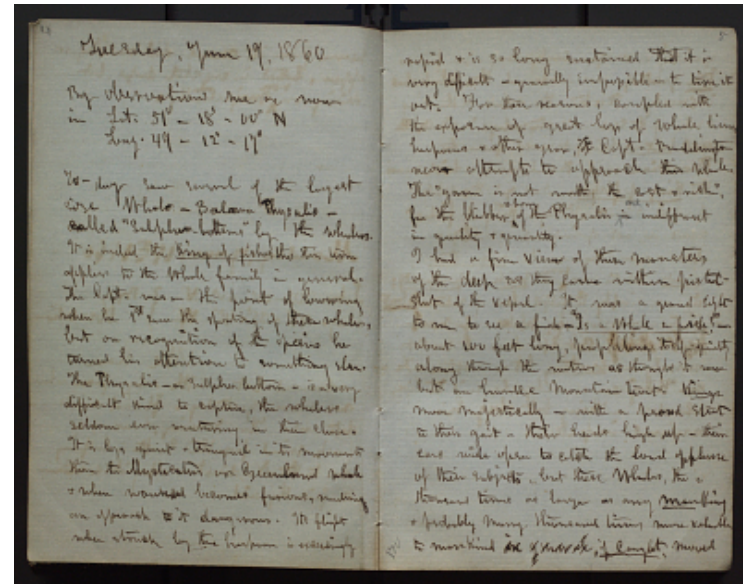 Tuesday, June 19, 1860
By observations we are now
in Lat. 51° - 18' - 00" N
Long. 49 - 12' - 17"
To-day saw several of the largest
size Whale - Balaena Physalis -
called "Sulphur bottoms" by the whalers.
It is indeed the king of fishes tho' this term
applies to the Whale family in general.
The Capt. was on the point of lowering
when he 1st saw the spouting of these whales,
but on recognition of the species he
turned his attention to something else.
The Physalis - or Sulphur bottom - is a very
difficult kind to capture, the whalers
seldom ever venturing in their chase.
It is less quiet & tranquil in its movements
than the Mysticetus or Greenland whale
& when wounded becomes furious, rendering
an approach to it dangerous. Its flight
when struck by the harpoon is exceedingly
5
rapid & is so long sustained that it is
very difficult - generally impossible - to tire it
out. For these reasons, coupled with
the exposure of great loss of whale lines
harpoons & other gear, the Capt.
never attempts to approach this whale.
The "game is not worth the cost & risk",
for the blubber & bone of the Physalis are indifferent
in quality & quantity.
I had a fine view of these monsters
of the deep as they came within pistol-
shot of the vessel. It was a grand sight
to me to see a fish - Is a Whale a fish? -
about 100 feet long, propelling
along through the waters as though it were
but an humble Mountain trout. Kings
move majestically - with a proud strut
in their gait - their heads high up - their
ears wide open to catch the loud applause
of their subjects, but these Whales, tho' a
thousand times as large as any man king
& probably many thousand times more valuable
to mankind if caught, moved